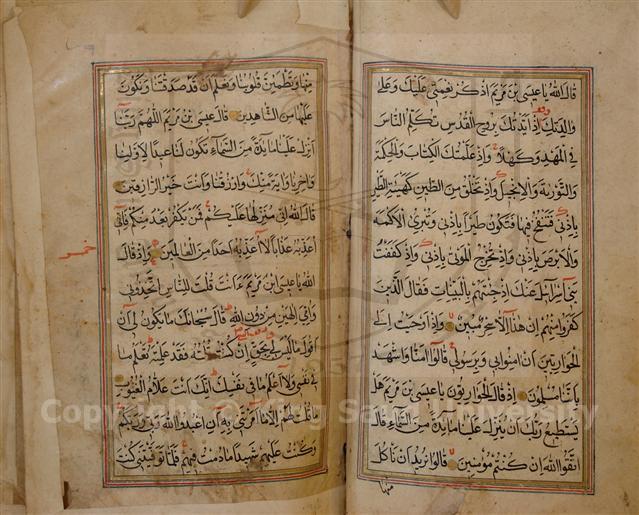 قَالَ اللهُ يَا عِيسَى بْنَ مَرْيَمَ اذْكُرْ نِعْمَتِي عَلَيْكَ وَعَلَى
وَالِدَتِكَ اِذْ اَيَّدْتُكَ بِرُوحِ الْقُدُسِ تُكَلِّمُ النَّاسَ
فِي الْمَهْدِ وَكَهْلًا وَاِذْ عَلَّمْتُكَ الْكِتَابَ وَالْحِكْمَةَ
وَالتَّوْرٰيةَ وَالْاِنْجِيلَ وَاِذْ تَخْلُقُ مِنَ الطِّينِ كَهَيْئَةِ الطَّيْرِ
بِاِذْنِي فَتَنْفُخُ فِيهَا فَتَكُونُ طَيْرًا بِاِذْنِي وَتُبْرِئُ الْاَكْمَهَ
وَالْاَبْرَصَ بِاِذْنِي وَاِذْ تُخْرِجُ الْمَوْتَى بِاِذْنِي وَاِذْ كَفَفْتُ
بَنِي اِسْرَائِيلَ عَنْكَ اِذْ جِئْتَهُمْ بِالْبَيِّنَاتِ فَقَالَ الَّذِينَ
كَفَرُوا مِنْهُمْ اِنْ هَذَا اِلَّا سِحْرٌ مُبِينٌ وَاِذْ اَوْحَيْتُ اِلَى
الْحَوَارِيِّينَ اَنْ اٰمِنُوا بِي وَبِرَسُولِي قَالُوا اٰمَنَّا وَاشْهَدْ
بِاَنَّنَا مُسْلِمُونَ اِذْ قَالَ الْحَوَارِيُّونَ يَا عِيسَى بْنَ مَرْيَمَ هَلْ
يَسْتَطِيعُ رَبُّكَ اَنْ يُنَزِّلَ عَلَيْنَا مَائِدَةً مِنَ السَّمَاءِ قَالَ
اتَّقُوا اللهَ اِنْ كُنْتُمْ مُؤْمِنِينَ قَالُوا نُرِيدُ اَنْ نَاْكُلَ
منها
مِنْهَا وَتَطْمَئِنَّ قُلُوبُنَا وَنَعْلَمَ اَنْ قَدْ صَدَقْتَنَا وَنَكُونَ
عَلَيْهَا مِنَ الشَّاهِدِينَ قَالَ عِيسَى بْنُ مَرْيَمَ اللّٰهُمَّ رَبَّنَا
اَنْزِلْ عَلَيْنَا مَائِدَةً مِنَ السَّمَاءِ تَكُونُ لَنَا عِيدًا لِاَوَّلِنَا
وَاٰخِرِنَا وَاٰيَةً مِنْكَ وَارْزُقْنَا وَاَنْتَ خَيْرُ الرَّازِقِينَ
قَالَ اللهُ اِنِّي مُنَزِّلُهَا عَلَيْكُمْ فَمَنْ يَكْفُرْ بَعْدُ مِنْكُمْ فَاِنِّي
اُعَذِّبُهُ عَذَابًا لَا اُعَذِّبُهُ اَحَدًا مِنَ الْعَالَمِينَ وَاِذْ قَالَ
اللهُ يَا عِيسَى ابْنَ مَرْيَمَ ءَاَنْتَ قُلْتَ لِلنَّاسِ اتَّخِذُونِي
وَاُمِّيَ اِلٰهَيْنِ مِنْ دُونِ اللهِ قَالَ سُبْحَانَكَ مَا يَكُونُ لِي اَنْ
اَقُولَ مَا لَيْسَ لِي بِحَقٍّ اِنْ كُنْتُ قُلْتُهُ فَقَدْ عَلِمْتَهُ تَعْلَمُ مَا
فِي نَفْسِي وَلَا اَعْلَمُ مَا فِي نَفْسِكَ اِنَّكَ اَنْتَ عَلَّامُ الْغُيُوبِ
مَا قُلْتُ لَهُمْ اِلَّا مَا اَمَرْتَنِي بِهِ اَنِ اعْبُدُوا اللهَ رَبِّي وَرَبَّكُمْ
وَكُنْتُ عَلَيْهِمْ شَهِيدًا مَا دُمْتُ فِيهِمْ فَلَمَّا تَوَفَّيْتَنِي كُنْتَ
Copyright © King Saud University